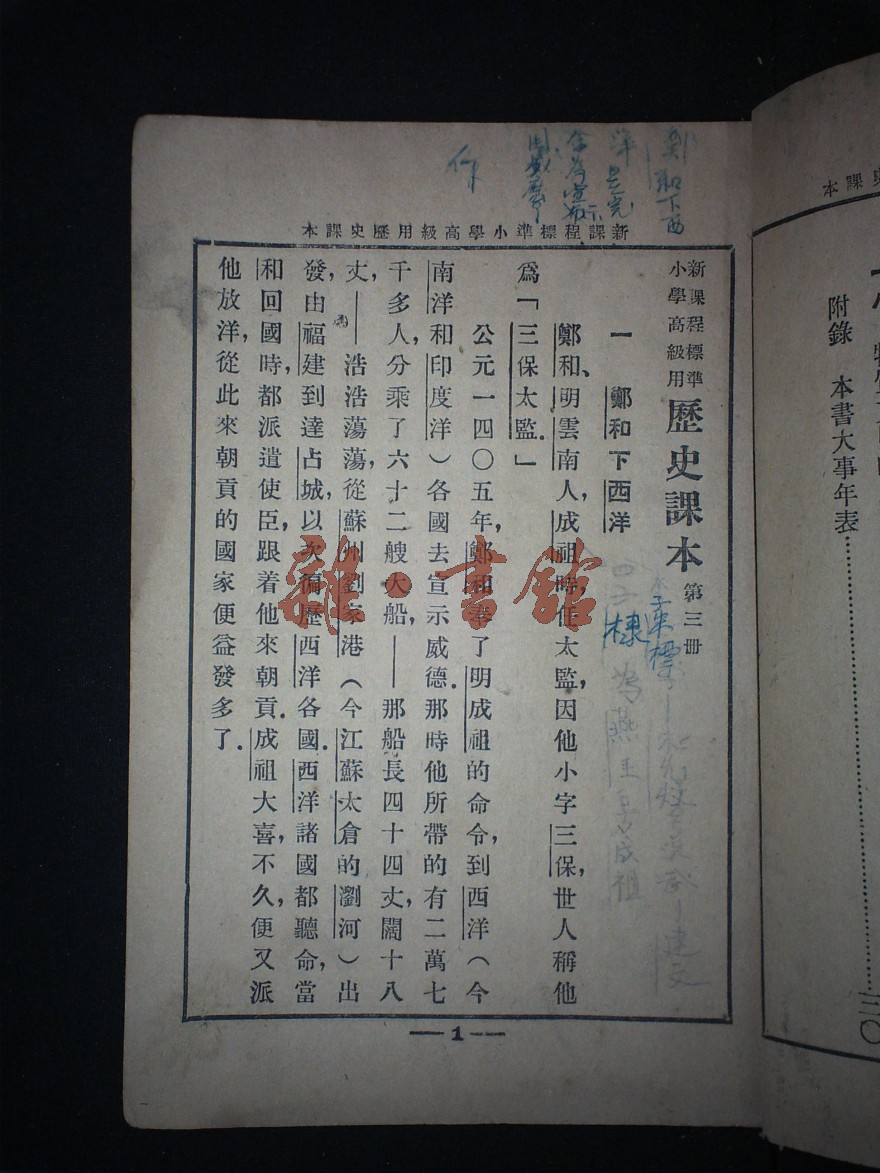 本課史歷用級高學小準標程課新
新課程標準
小學高級用
歷史課本 第三册
一 鄭和下西洋
鄭和、明雲南人，成祖時任太監，因他小字三保，世人稱他
爲「三保太監．」
公元一四〇五年，鄭和奉了明成祖的命令，到西洋（今
南洋和印度洋）各國去宣示威德．那時他所帶的有二萬七
千多人，分乘了六十二艘大船，——那船長四十四丈，闊十八
丈，——浩浩蕩蕩，從蘇州劉家港（今江蘇太倉的瀏河）出
發，由福建到達占城，以次徧歷西洋各國．西洋諸國都聽命，當
和回國時，都派遣使臣，跟着他來朝貢．成祖大喜，不久，便又派
他放洋，從此來朝貢的國家便益發多了．
1
鄭和下西
洋
棣
棣標
爲燕王
成祖
建文
雜·書館
本課史
附錄 本書大事年表……三〇